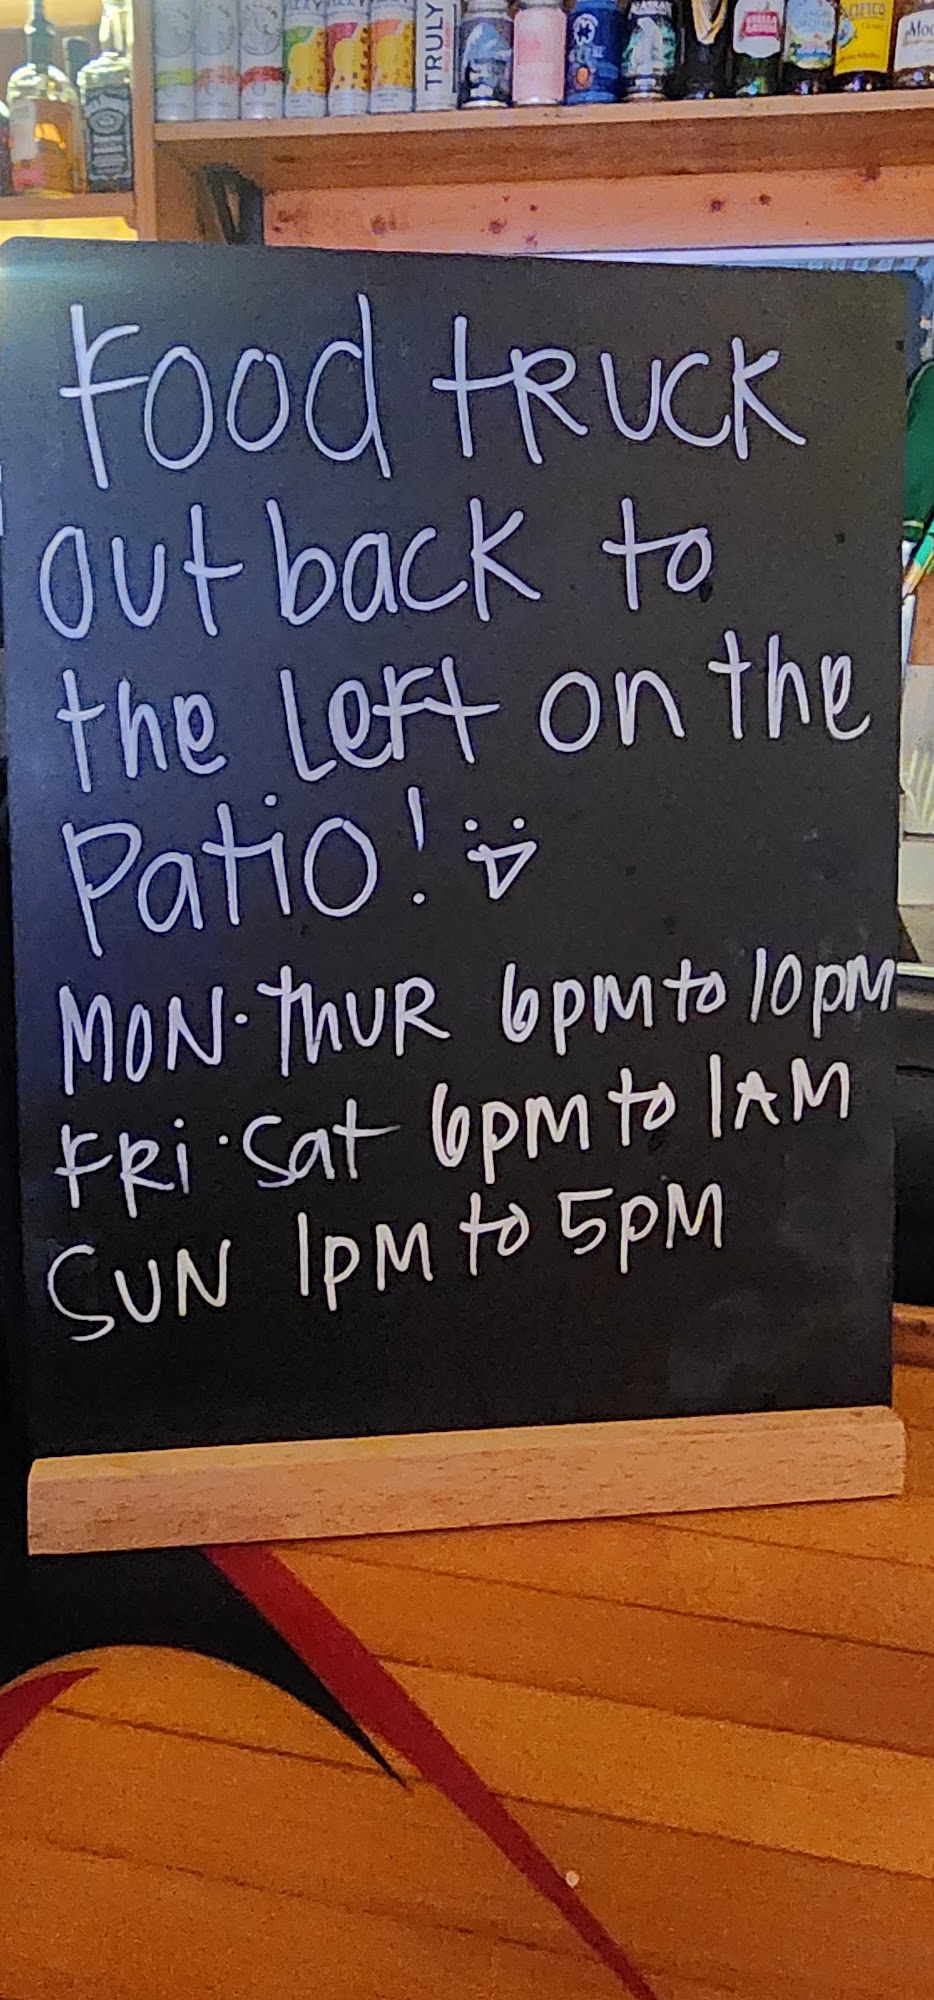 TRULY
STELLA
PACIFICO
Food tRUCK
out back to
the Left on the
Patio!
MON·thUR 6pm to 10pm
FRi·Sat 6pm to 1AM
SUN 1pm to 5pm